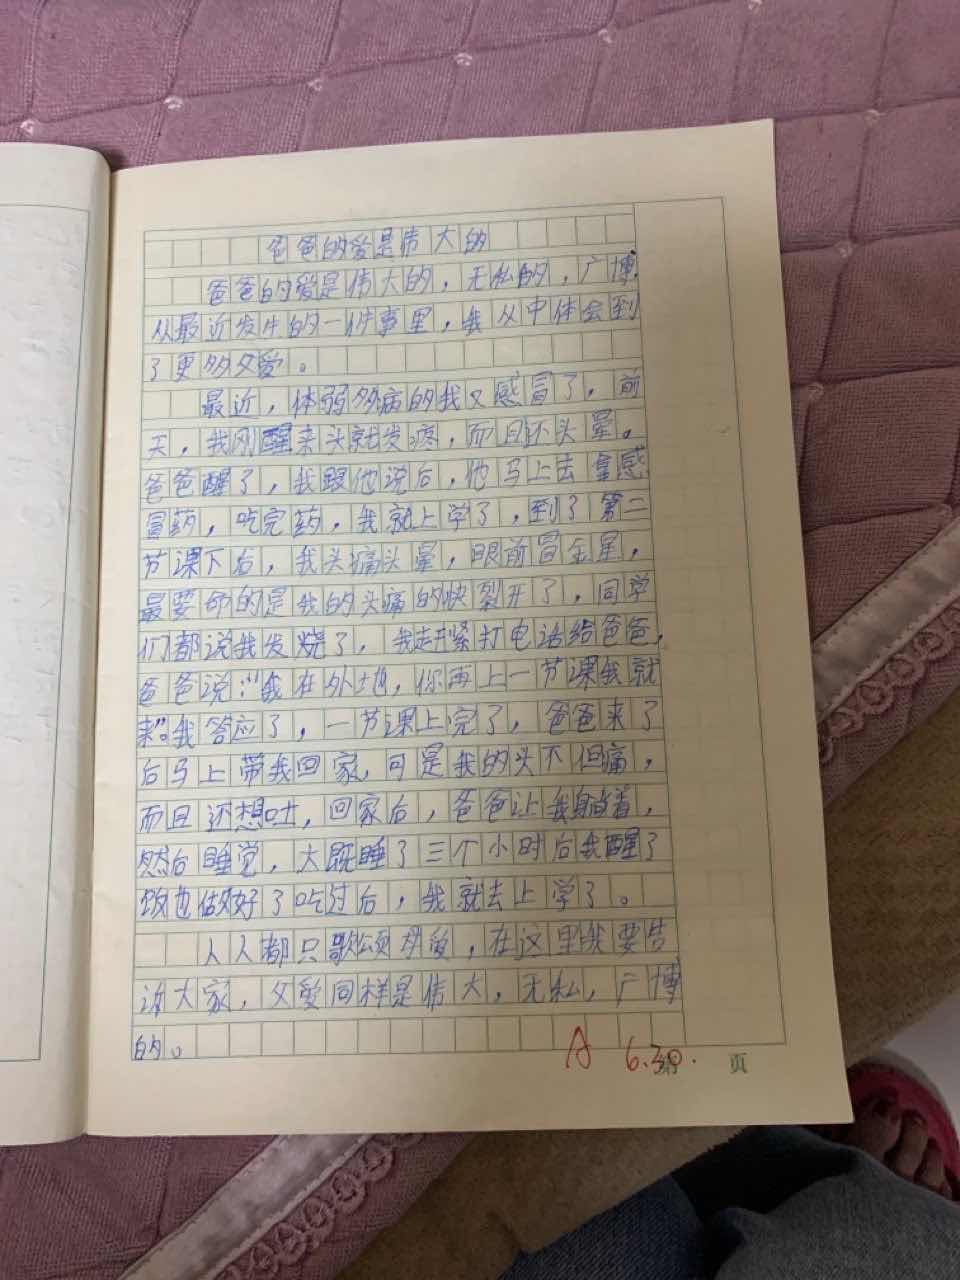 爸爸的爱是伟大的
爸爸的爱是伟大的，无私的，广博，
从最近发生的一件事里，我从中体会到
了更多父爱。
最近，体弱多病的我又感冒了，前
天，我刚醒来头就发疼，而且还头晕。
爸爸醒了，我跟他说后，他马上去拿感
冒药，吃完药，我就上学了，到了第二
节课下后，我头痛头晕，眼前冒金星，
最要命的是我的头痛的快裂开了，同学
们都说我发烧了，我赶紧打电话给爸爸，
爸爸说：“我在外地，你再上一节课我就
来”。我答应了，一节课上完了，爸爸来了
后马上带我回家，可是我的头不但痛，
而且还想吐，回家后，爸爸让我躺着，
然后睡觉，大既睡了三个小时后我醒了
饭也做好了吃过后，我就去上学了。
人人都只歌颂母爱，在这里我要告
诉大家，父爱同样是伟大，无私，广博
的。
A 6.30.
第 页